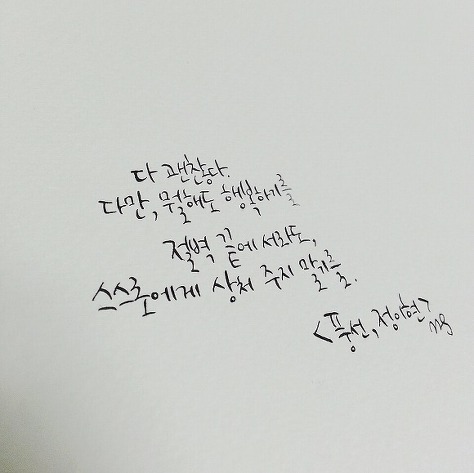 다 괜찮다.
다만, 뭘해도 행복하기를
절벽 끝에 서라도,
스스로에게 상처 주지 말기를.
<풍선, 정아현>